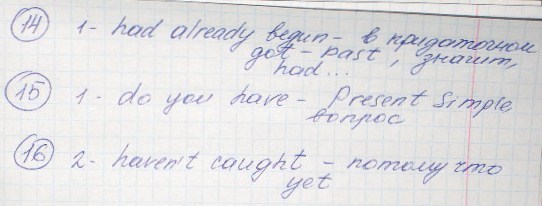 14 1 - had already begun - в придаточном
got - past, значит,
had...
15 1 - do you have - Present Simple
вопрос
16 2 - haven't caught - потому что
yet